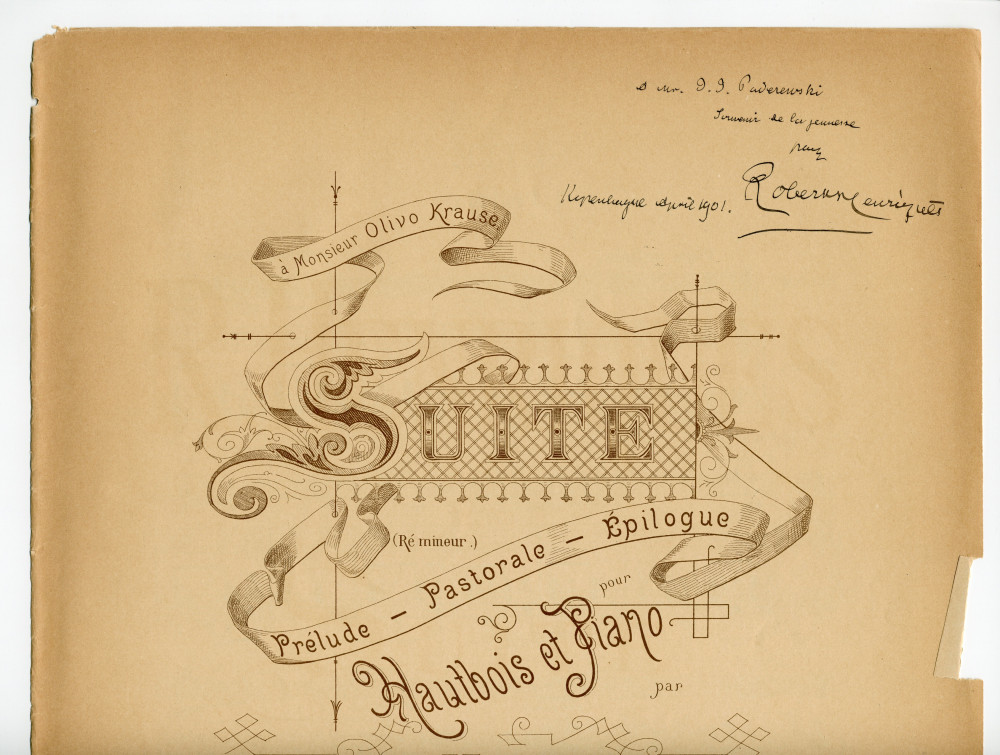 à Mr. I. I. Paderewski
Souvenir de la jeunesse
par
Kopenhague April 1901. Robert Henriques
à Monsieur Olivo Krause.
SUITE
(Ré mineur.)
Prélude — Pastorale — Épilogue
pour
Hautbois et Piano
par